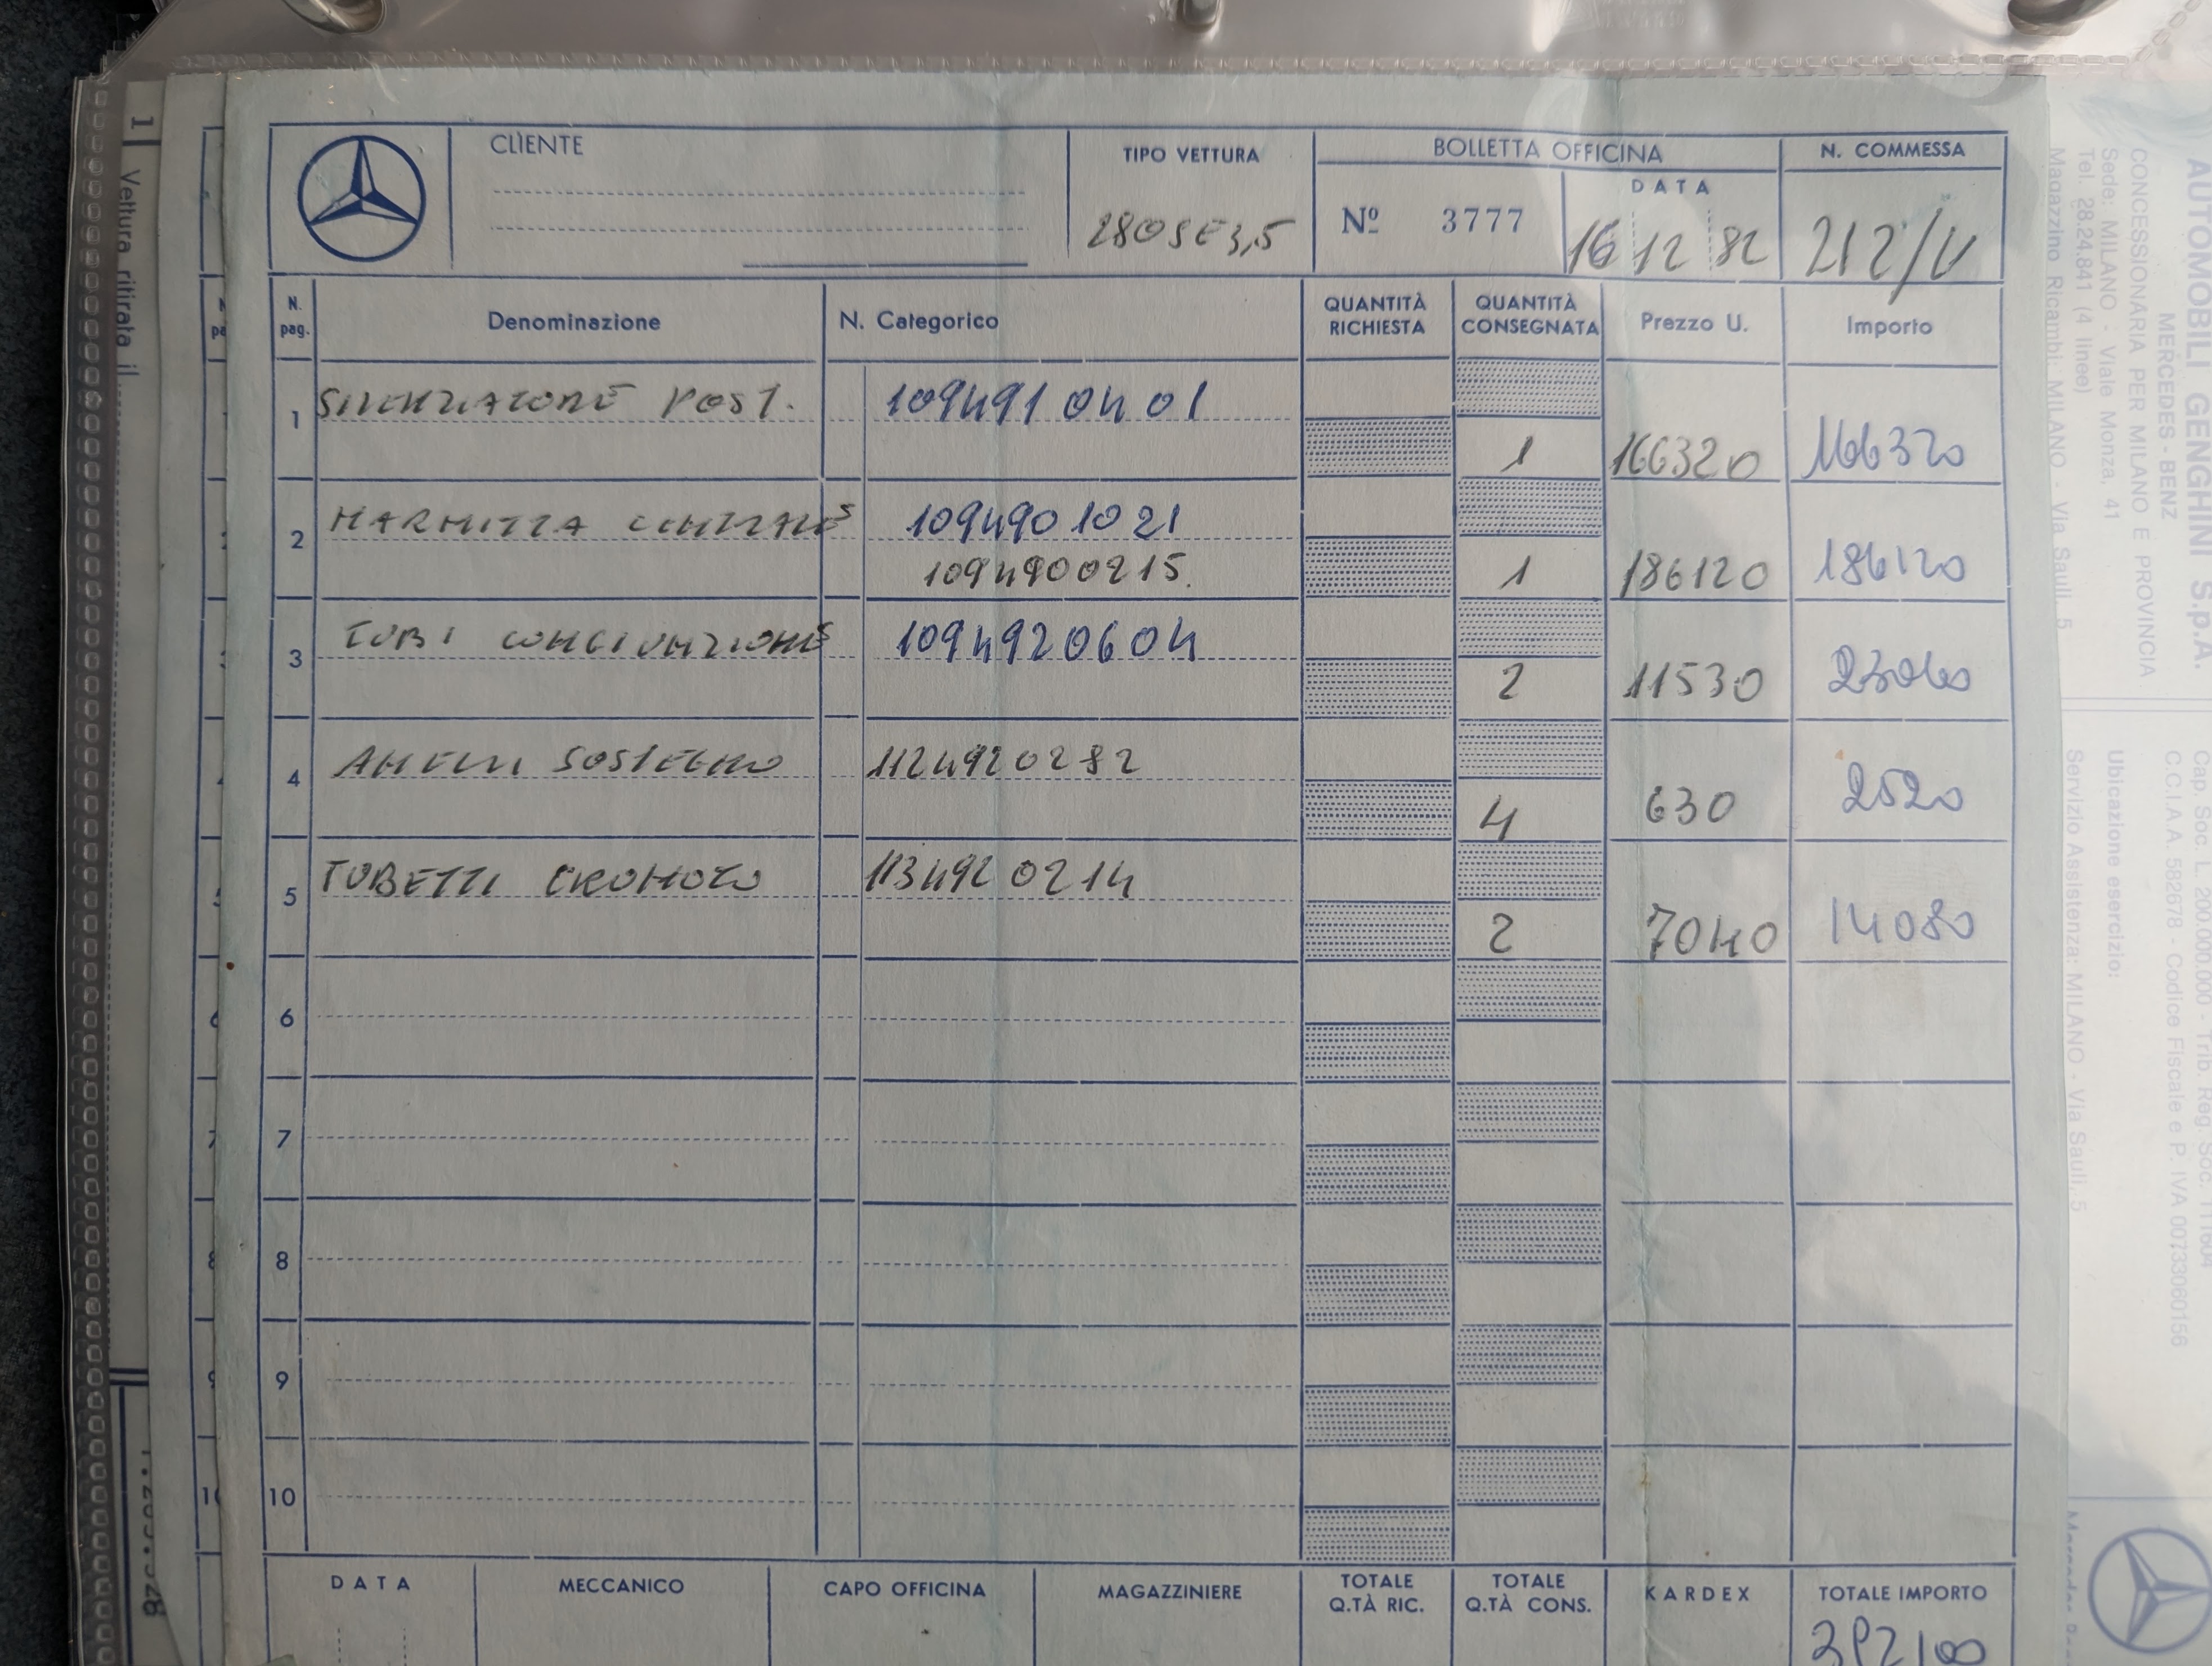 CLIENTE
TIPO VETTURA
280SE3,5
BOLLETTA OFFICINA
Nº 3777
DATA
16 12 82
N. COMMESSA
212/V
N. pag.
Denominazione
N. Categorico
QUANTITÀ RICHIESTA
QUANTITÀ CONSEGNATA
Prezzo U.
Importo
1 SILENZIATORE POST. 109491 04 01
1 166320 166320
2 MARMITTA CENTRALE 109490 10 21
1094900215. 1 186120 186120
3 TUBI CONGIUNZIONE 1094920604
2 11530 23060
4 ANELLI SOSTEGNO 1124920282
4 630 2520
5 TUBETTI CROMATO 113492 0214
2 7040 14080
6
7
8
9
10
DATA
MECCANICO
CAPO OFFICINA
MAGAZZINIERE
TOTALE Q.TÀ RIC.
TOTALE Q.TÀ CONS.
KARDEX
TOTALE IMPORTO
392100
1
Vettura ritirata il
AUTOMOBILI GENGHINI S.p.A.
MERCEDES - BENZ
CONCESSIONARIA PER MILANO E PROVINCIA
Sede: MILANO - Viale Monza, 41
Tel. 28.24.841 (4 linee)
Magazzino Ricambi: MILANO - Via Sauli, 5
Cap. Soc. L. 200.000.000 - Trib. Reg. Soc. 111604
C.C.I.A.A. 582678 - Codice Fiscale e P. IVA 00733060156
Ubicazione esercizio:
Servizio Assistenza: MILANO - Via Sauli, 5